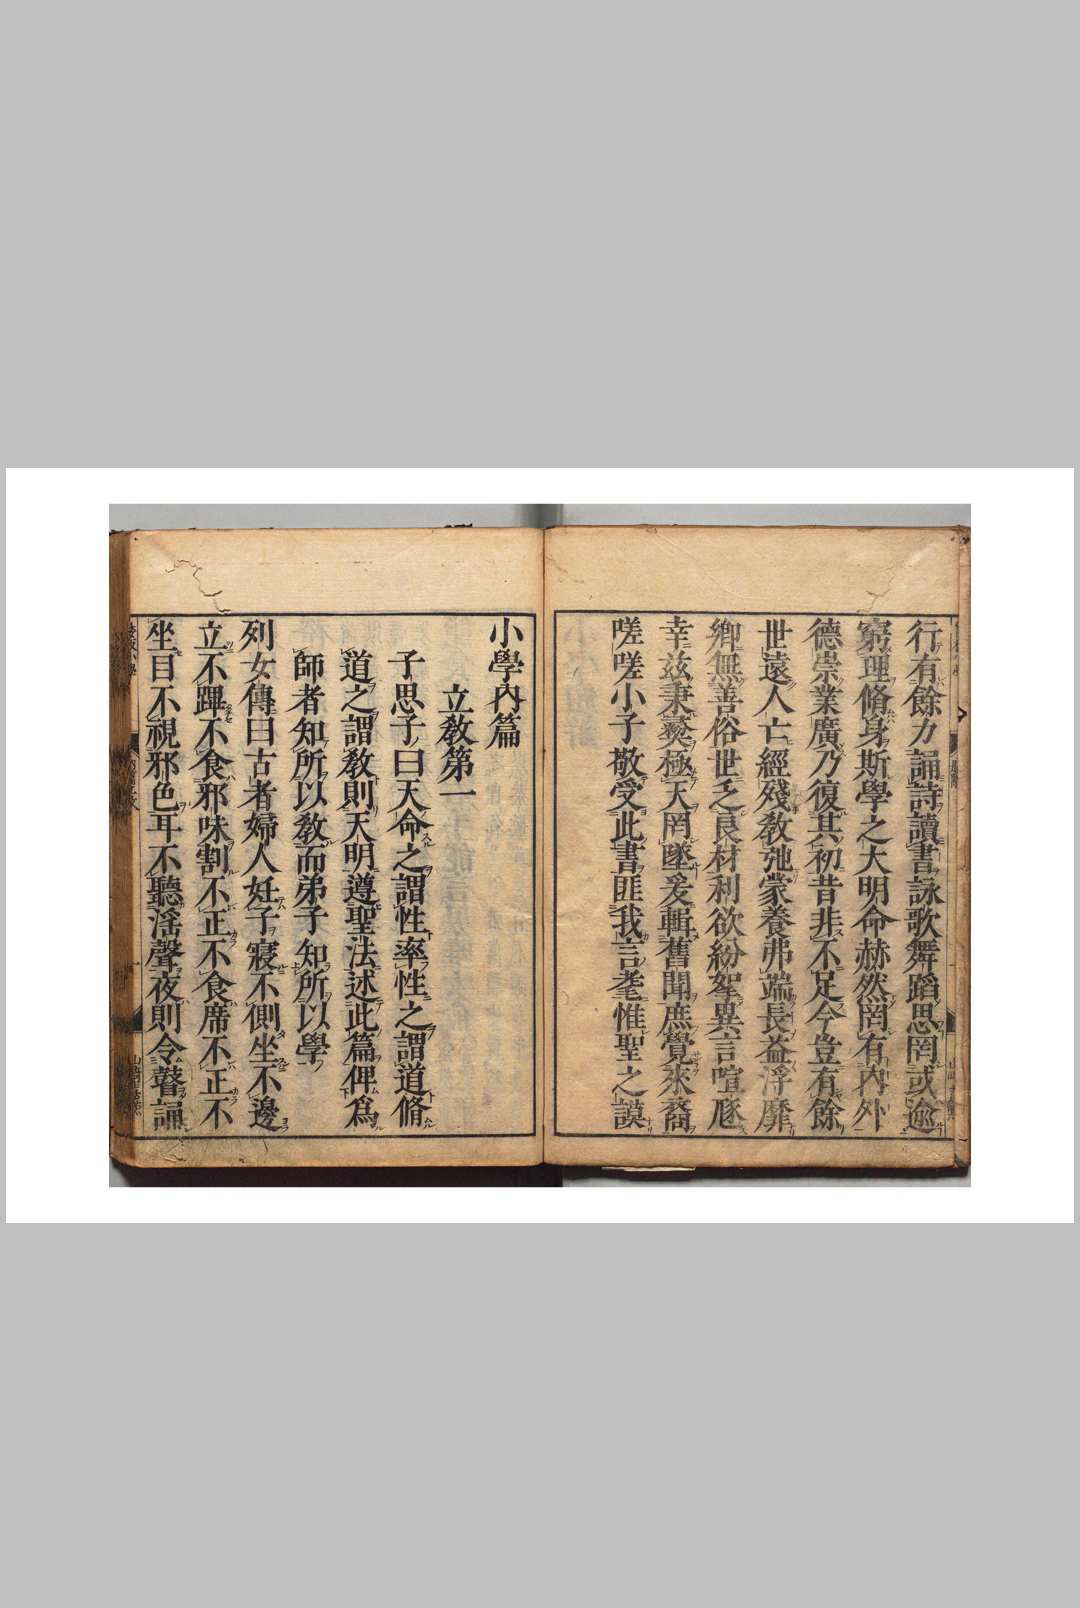 行有餘力誦詩讀書詠歌舞蹈思罔或逾
窮理脩身斯學之大明命赫然罔有內外
德崇業廣乃復其初昔非不足今豈有餘
世遠人亡經殘敎弛蒙養弗端長益浮靡
鄕無善俗世乏良材利欲紛挐異言喧豗
幸玆秉彝極天罔墜爰輯舊聞庶覺來裔
嗟嗟小子敬受此書匪我言耄惟聖之謨
小學內篇
立敎第一
子思子曰天命之謂性率性之謂道脩
道之謂敎則天明遵聖法述此篇俾爲
師者知所以敎而弟子知所以學
列女傳曰古者婦人妊子寢不側坐不邊
立不蹕不食邪味割不正不食席不正不
坐目不視邪色耳不聽淫聲夜則令瞽誦